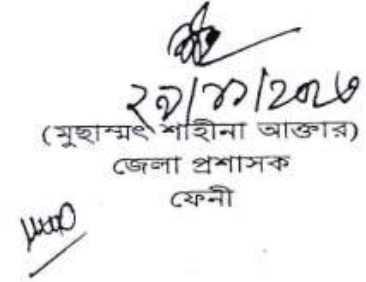 ২৯/১১/২০২৩
(মুছাম্মৎ শাহীনা আক্তার)
জেলা প্রশাসক
ফেনী